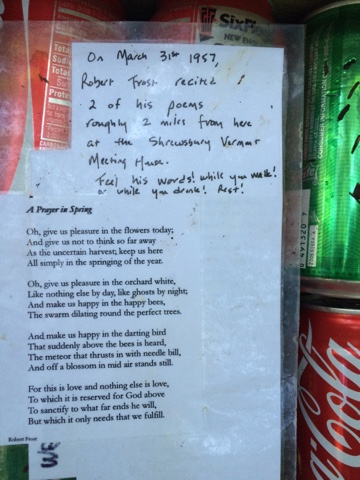 On March 31st 1957,
Robert Frost recited
2 of his poems
roughly 2 miles from here
at the Shrewsbury Vermont
Meeting House.
Feel his words! while you walk!
or while you drink! Rest!
A Prayer in Spring
Oh, give us pleasure in the flowers today;
And give us not to think so far away
As the uncertain harvest; keep us here
All simply in the springing of the year.
Oh, give us pleasure in the orchard white,
Like nothing else by day, like ghosts by night;
And make us happy in the happy bees,
The swarm dilating round the perfect trees.
And make us happy in the darting bird
That suddenly above the bees is heard,
The meteor that thrusts in with needle bill,
And off a blossom in mid air stands still.
For this is love and nothing else is love,
To which it is reserved for God above
To sanctify to what far ends he will,
But which it only needs that we fulfill.
Robert Frost
Total
Sodiu
Total
Prote
SixF
NEW EN
Coca-Cola